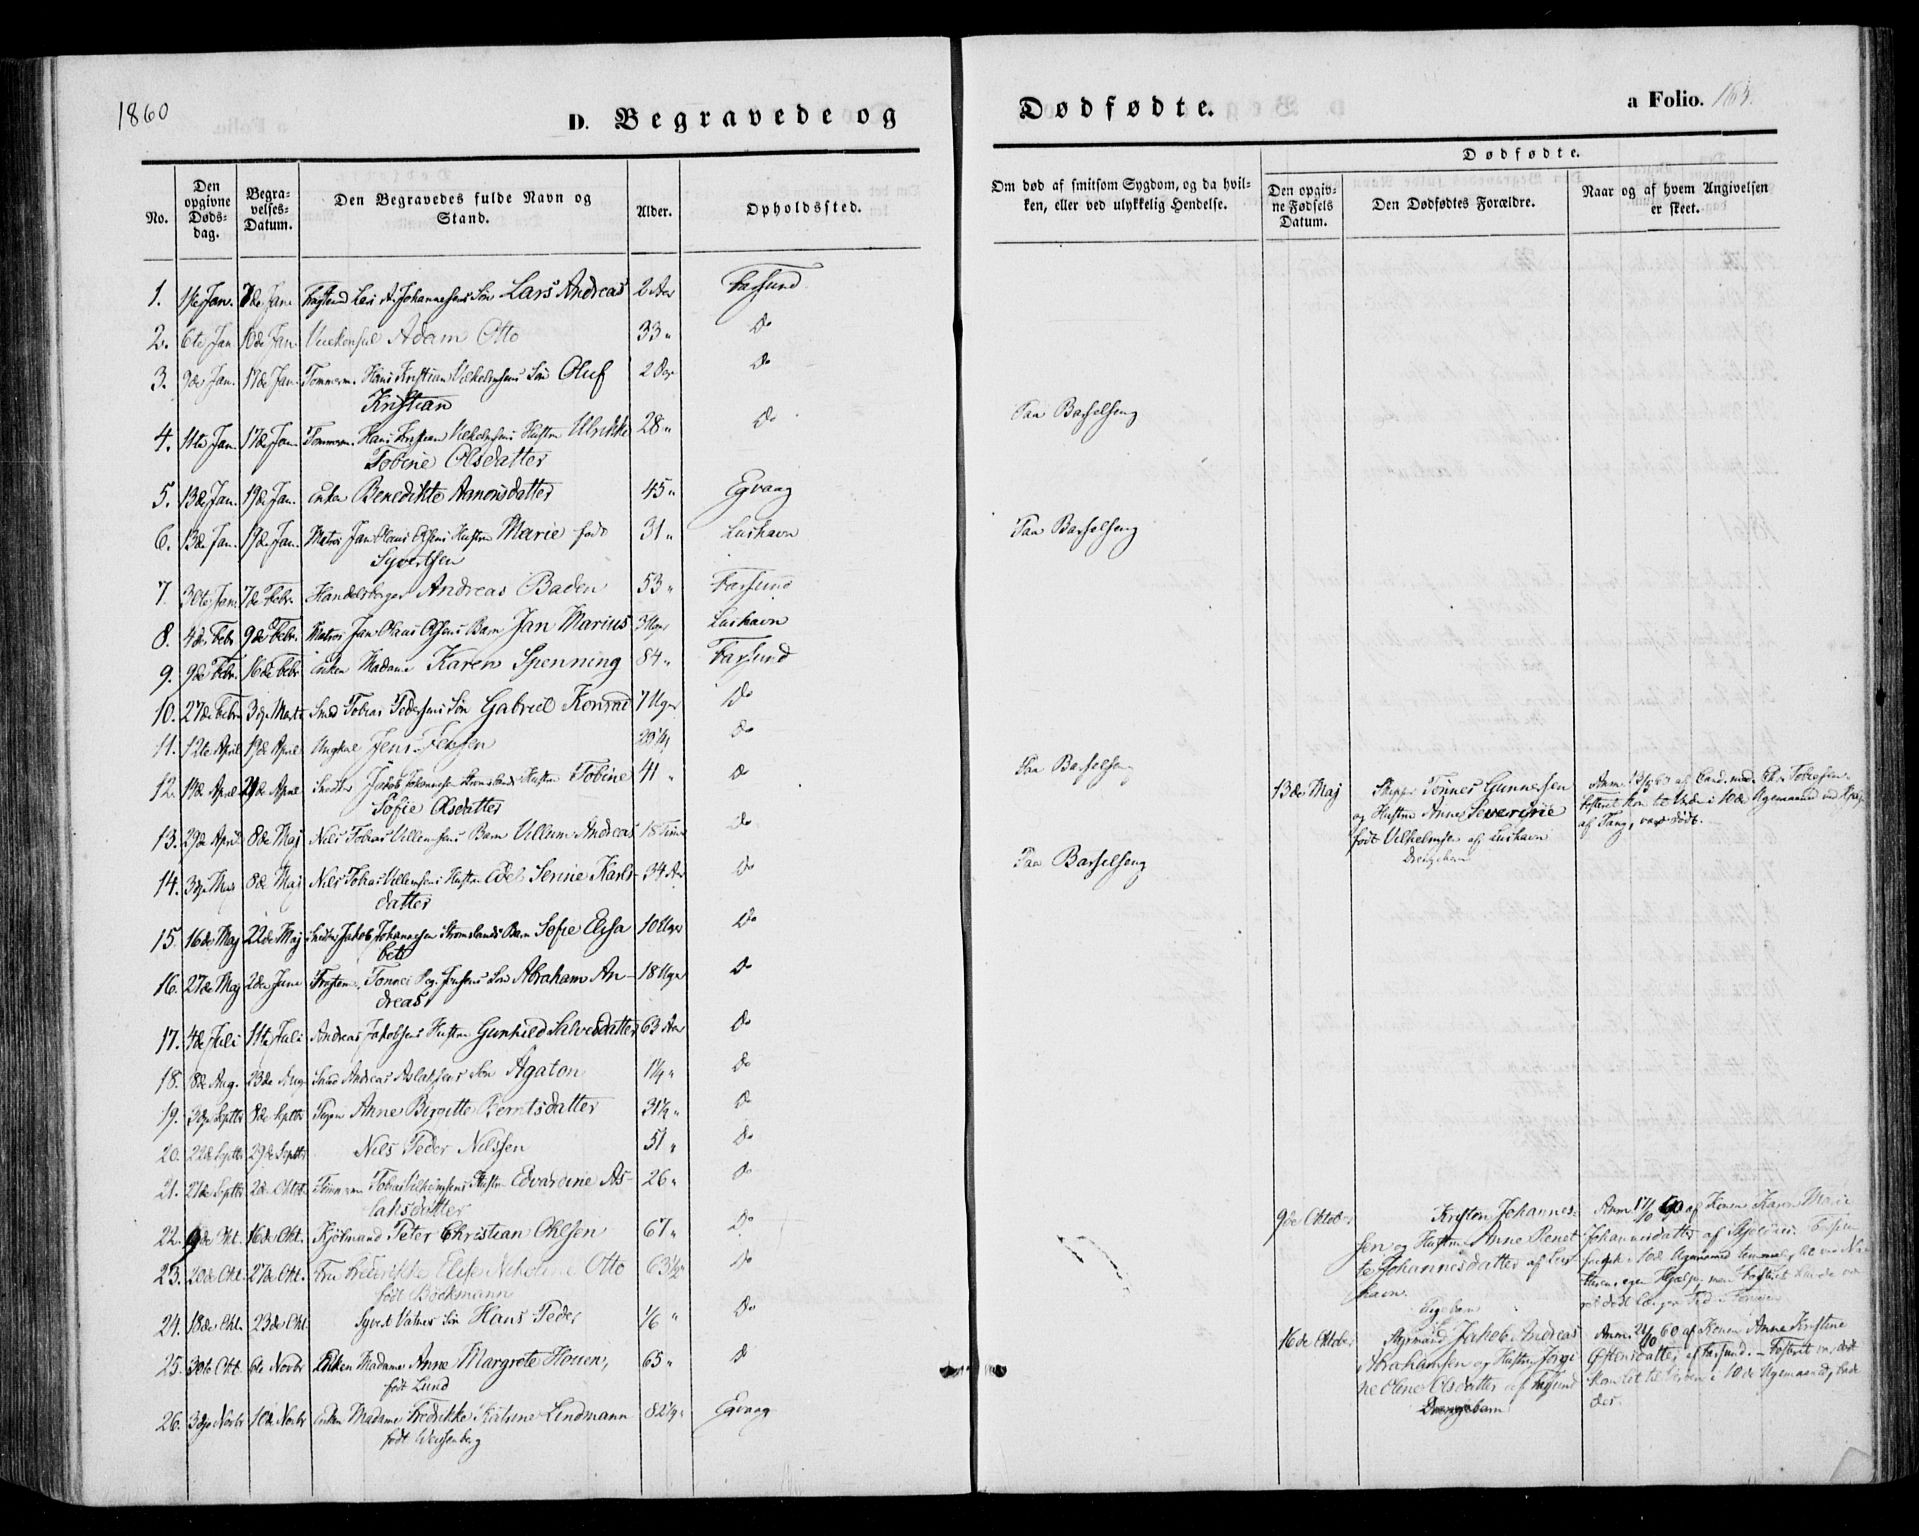 1860
D. Begravede og Dødfødte. a Folio. 165.
No.
Den opgivne Døds-dag.
Begra-velses-Datum.
Den Begravedes fulde Navn og Stand.
Alder.
Opholdssted.
Om død af smitsom Sygdom, og da hvil-ken, eller ved ulykkelig Hendelse.
Dødfødte.
Den opgiv-ne Fødsels Datum.
Den Dødfødtes Forældre.
Naar og af hvem Angivelsen er skeet.
1. 1ste Jan. 7de Jan. Lars Andreas 2 Aar Farsund
2. 6te Jan 10de Jan. Adam Otto 33 " Do
3. 9de Jan. 17de Jan. Tømmerm. Hans Kristian Vilhelmsens Søn Oluf 2 Aar Do
Kristian
4. 11te Jan. 17de Jan. Tømmerm. Hans Kristian Vilhelmsens Hustru Ulrikke 28 " Do Paa Barselseng
Tobine Olsdatter
5. 13de Jan. 19de Jan. Enke Benedikte Aanonsdatter 45 " Egvaag
6. 13de Jan. 19de Jan. Matros Jan Olaus Olsens Hustru Marie født 31 " Lushavn Paa Barselseng
Syvertsen
7. 30te Jan. 7de Febr. Handelsborger Andreas Baden 53 " Farsund
8. 4de Febr 9de Febr. Matros Jan Olaus Olsens Barn Jan Marius 3 Uger Lushavn
9. 9de Febr. 16de Febr Enken Madame Karen Spenning 84 " Farsund
10. 27de Febr 3die Marts Smed Tobias Pedersens Søn Gabriel Konrad 7 Uger Do
11. 12te April 19de April Ungkarl Jens Jensen Do
12. 14de April 21de April Snedker Jakob Johannesen Strømslands Hustru Tobine 41 " Do Paa Barselseng
Sofie Olsdatter
13. 29de April 8de Maj Nils Tobias Villumsens Barn Villum Andreas 18 Timer Do
14. 3die Maj 8de Maj Nils Tobias Villumsens Hustru Edel Serine Karls- 34 Aar Do Paa Barselseng
datter
15. 16de Maj 22de Maj Snedker Jakob Johannesen Strømslands Barn Sofie Elisa 10 Uger Do
beth
16. 27de Maj 2den Juni Tønnes Søn Abraham An- 18 Uger Do
dreas
17. 4de Juli 11te Juli Andreas Jakobsens Hustru Gunhild Salvesdatter 63 Aar Do
18. 8de Aug. 23de Aug. Smed Andreas Aslaksens Søn Agaton 1¼ " Do
19. 3die Septbr 8de Septbr Pigen Anne Birgitte Berntsdatter 31½ " Do
20. 22de Septbr 29de Septbr Nils Peder Nilssen 51 " Do
21. 27de Septbr 2de Oktob. Tømmerm Tobias Vilhelmsens Hustru Edvardine As- 26 " Do
laksdatter
22. 9de Okt. 16de Okt. Peter Christian Ohlsen 67 " Do
23. 20de Okt. 27de Okt. Fru Frederikke Elise Nikoline Otto 63½ " Do
født Bøckmann
24. 18de Okt. 23de Okt. Syvert Vatnes Søn Hans Peder 1/6 " Do
25. 30te Okt. 6te Novbr Enken Madame Anne Margrete Houen, 65 " Do
født Lund
26. 3die Novbr 10de Novbr Enken Madame Fredrikke Katrine Lindmann 82½ " Egvaag
født Weissenberg
13de Maj
Skipper Tønnes Gunnersen
og Hustru Anne Severine
født Vilhelmsen af Lushavn
Drengebarn
Anm. af Cand. med. Chr. Tobiesen.
Fosteret kom til Verden i 10de Ugemaaned ved Hjælp
af Tang, var dødt.
9de Oktober
Kristen Johannes-
sen og Hustru Anne Renet
te Johannesdatter af Lus
havn.
Pigebarn
Anm. 17/10 60 af Konen Karen Marie
Johannesdatter af
16de Oktober
Styrmand Jakob Andreas
Abrahamsen og Hustru Jørgi
ne Oline Olsdatter af Farsund
Drengebarn
Anm. 24/10 60 af Konen Anne Kristine
Østensdatter af Farsund. - Fosteret var dødt
kom til Verden i 10de Ugemaaned,